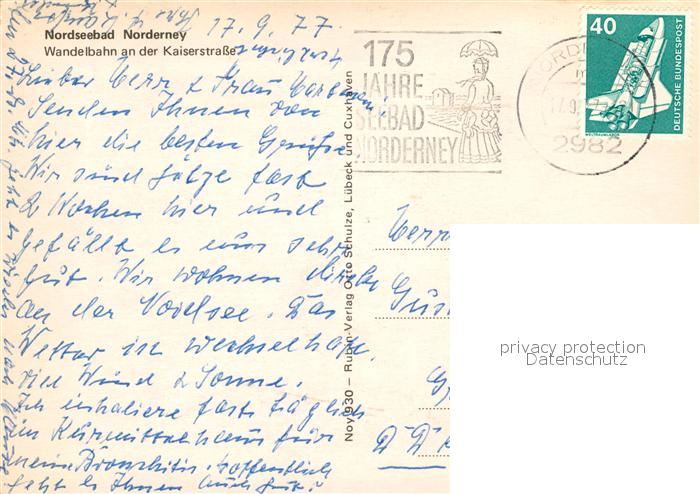 17.9.77
Nordseebad Norderney
Wandelbahn an der Kaiserstraße
Lieber Herr & Frau
Senden Ihnen von
hier die besten Grüße
Wir sind jetzt fast
2 Wochen hier und
gefällt es uns sehr
gut. Wir wohnen direkt
an der Nordsee. Das
Wetter ist wechselhaft,
viel Wind & Sonne.
Ich inhaliere fast täglich
im Kurmittelhaus für
meine Bronchitis. Hoffentlich
geht es Ihnen auch gut!
Noy 930 – Rubin-Verlag Otto Schulze, Lübeck und Cuxhaven
175
JAHRE
SEEBAD
NORDERNEY
2982
40
DEUTSCHE BUNDESPOST
WELTRAUMLABOR
Herrn
DDR
privacy protection
Datenschutz